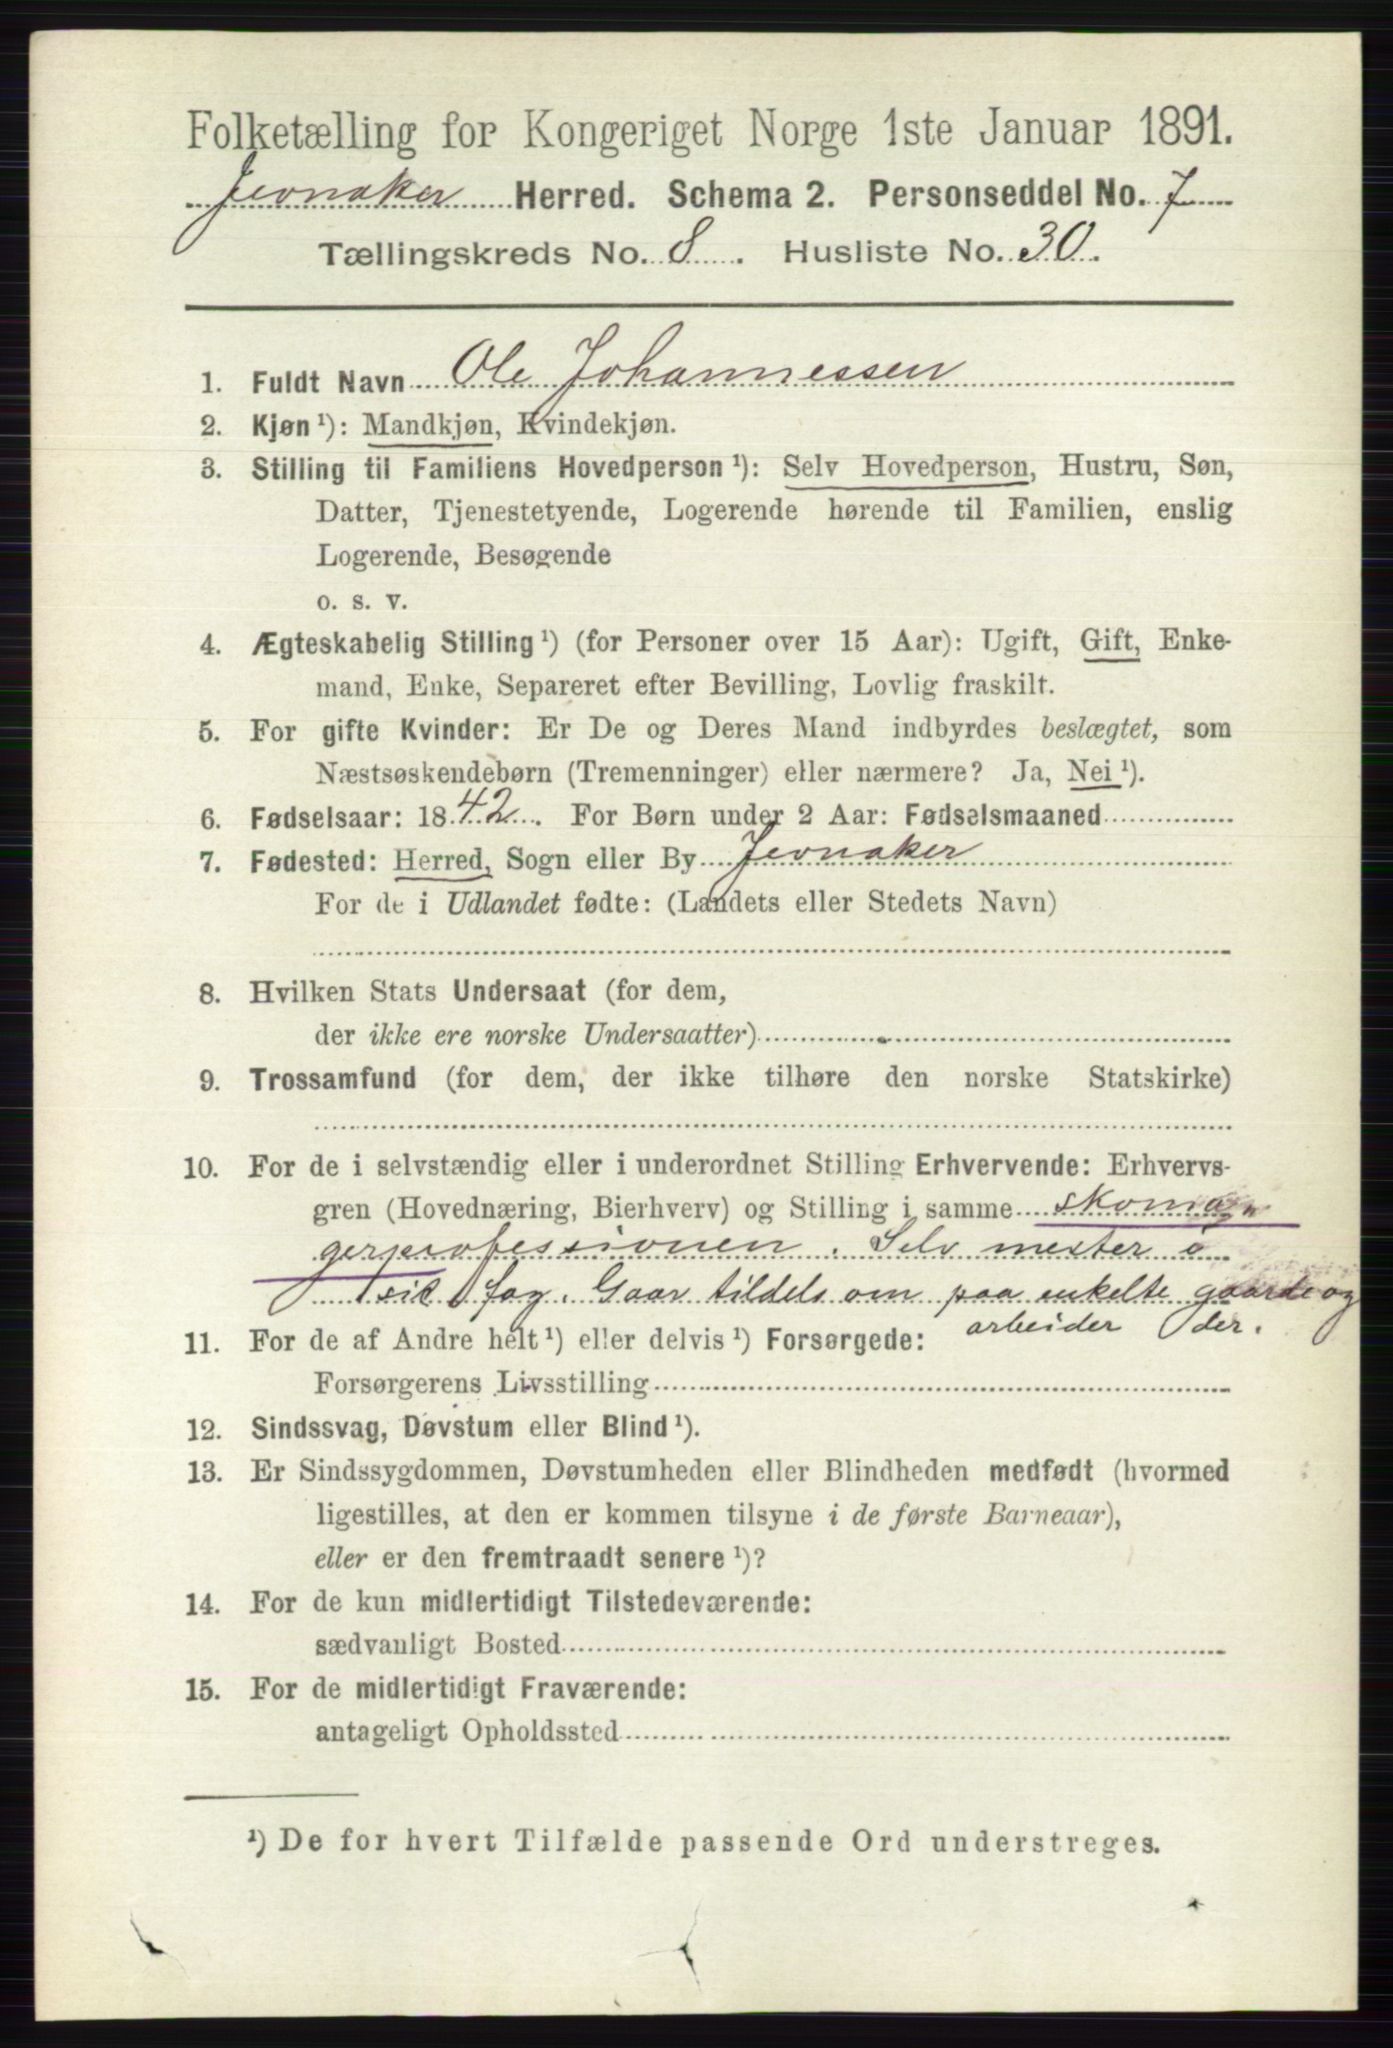 Folketælling for Kongeriget Norge 1ste Januar 1891.
Jevnaker Herred. Schema 2. Personseddel No. 7
Tællingskreds No. 8. Husliste No. 30.
1. Fuldt Navn Ole Johannessen
2. Kjøn ¹): Mandkjøn, Kvindekjøn.
3. Stilling til Familiens Hovedperson ¹): Selv Hovedperson, Hustru, Søn,
Datter, Tjenestetyende, Logerende hørende til Familien, enslig
Logerende, Besøgende
o. s. v.
4. Ægteskabelig Stilling ¹) (for Personer over 15 Aar): Ugift, Gift, Enke-
mand, Enke, Separeret efter Bevilling, Lovlig fraskilt.
5. For gifte Kvinder: Er De og Deres Mand indbyrdes beslægtet, som
Næstsøskendebørn (Tremenninger) eller nærmere? Ja, Nei ¹).
6. Fødselsaar: 1842. For Børn under 2 Aar: Fødselsmaaned
7. Fødested: Herred, Sogn eller By Jevnaker
For de i Udlandet fødte: (Landets eller Stedets Navn)
8. Hvilken Stats Undersaat (for dem,
der ikke ere norske Undersaatter)
9. Trossamfund (for dem, der ikke tilhøre den norske Statskirke)
10. For de i selvstændig eller i underordnet Stilling Erhvervende: Erhvervs-
gren (Hovednæring, Bierhverv) og Stilling i samme skoma-
gerprofessionen. Selv mester i
sit fag. Gaar tildels om paa enkelte gaarde og
arbeider der.
11. For de af Andre helt ¹) eller delvis ¹) Forsørgede:
Forsørgerens Livsstilling
12. Sindssvag, Døvstum eller Blind ¹).
13. Er Sindssygdommen, Døvstumheden eller Blindheden medfødt (hvormed
ligestilles, at den er kommen tilsyne i de første Barneaar),
eller er den fremtraadt senere ¹)?
14. For de kun midlertidigt Tilstedeværende:
sædvanligt Bosted
15. For de midlertidigt Fraværende:
antageligt Opholdssted
¹) De for hvert Tilfælde passende Ord understreges.